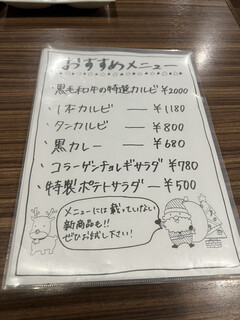 おすすめメニュー
・黒毛和牛の特選カルビ ¥2000
・1本カルビ — ¥1,180
・タンカルビ — ¥800
・黒カレー — ¥680
・コラーゲンチョレギサラダ ¥780
・特製ポテトサラダ — ¥500
メニューには載っていない
新商品も!!
ぜひお試し下さい!